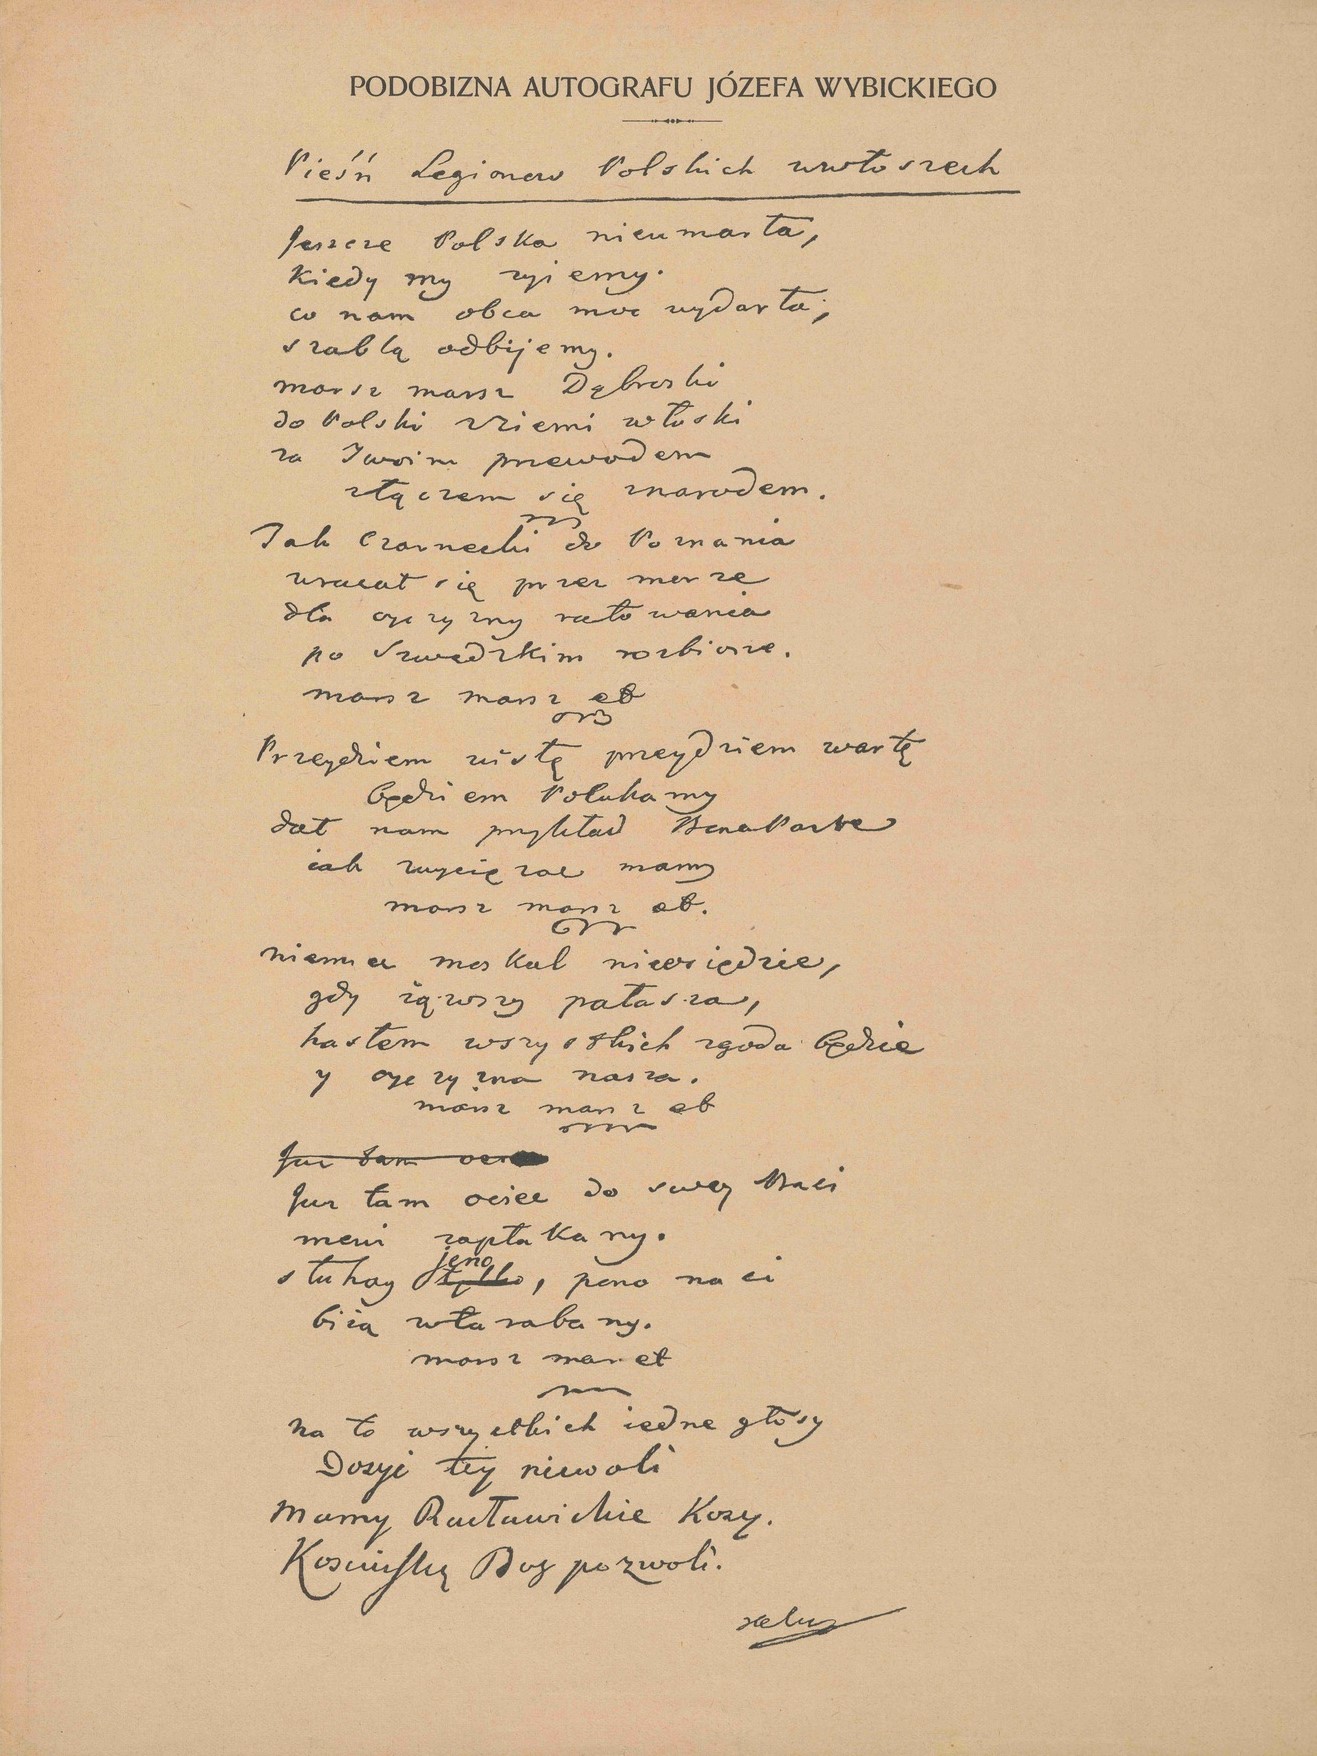 PODOBIZNA AUTOGRAFU JÓZEFA WYBICKIEGO
Pieśń Legionow Polskich wewłoszech
Jeszcze Polska nieumarła,
kiedy my zyiemy.
co nam obca moc wydarła,
szablą odbijemy.
marsz marsz Dąbroski
do Polski zZiemi włoski
za Twoim przewodem
złączem się znarodem.
Jak Czarnecki do Poznania
wracał się przez morze
dla oyczyzny ratowania
po Szwedzkim rozbiorze.
marsz marsz etc
Przeydziem wisłę przeydziem wartę
będziem Polakamy
dał nam przykład BonaParte
iak zwyciężac mamy
marsz marsz etc.
niemiec moskal nieosiędzie,
gdy iąwszy pałasza,
hasłem wszystkich zgoda będzie
y oyczyzna nasza.
marsz marsz etc
Juz tam
Juz tam ociec do swey Basi
mowi zapłakany.
jeno
słuhay tylko, pono nasi
biią wtarabany.
marsz mar etc
na to wszystkich iedne głosy
Dosyc tey niewoli
mamy Racławickie Kosy.
Kosciuszkę Bog pozwoli.